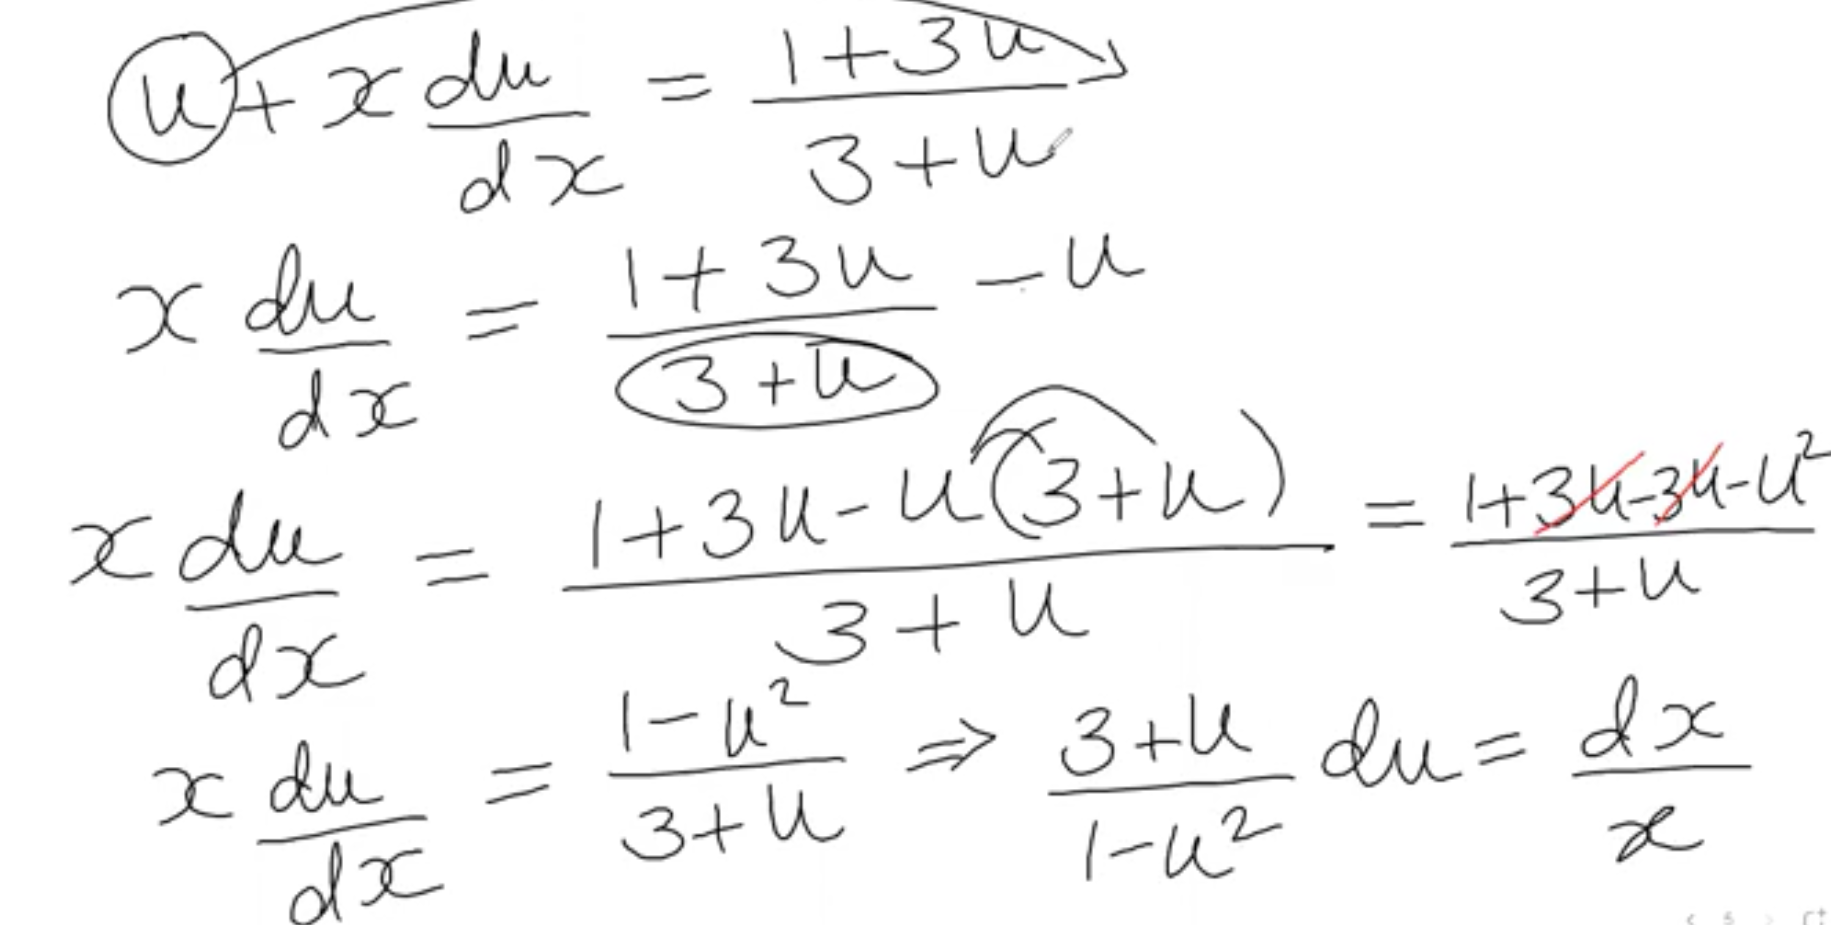 u + x du/dx = (1+3u)/(3+u)
x du/dx = (1+3u)/(3+u) - u
x du/dx = (1+3u-u(3+u))/(3+u) = (1+3u-3u-u²)/(3+u)
x du/dx = (1-u²)/(3+u) ⇒ (3+u)/(1-u²) du = dx/x